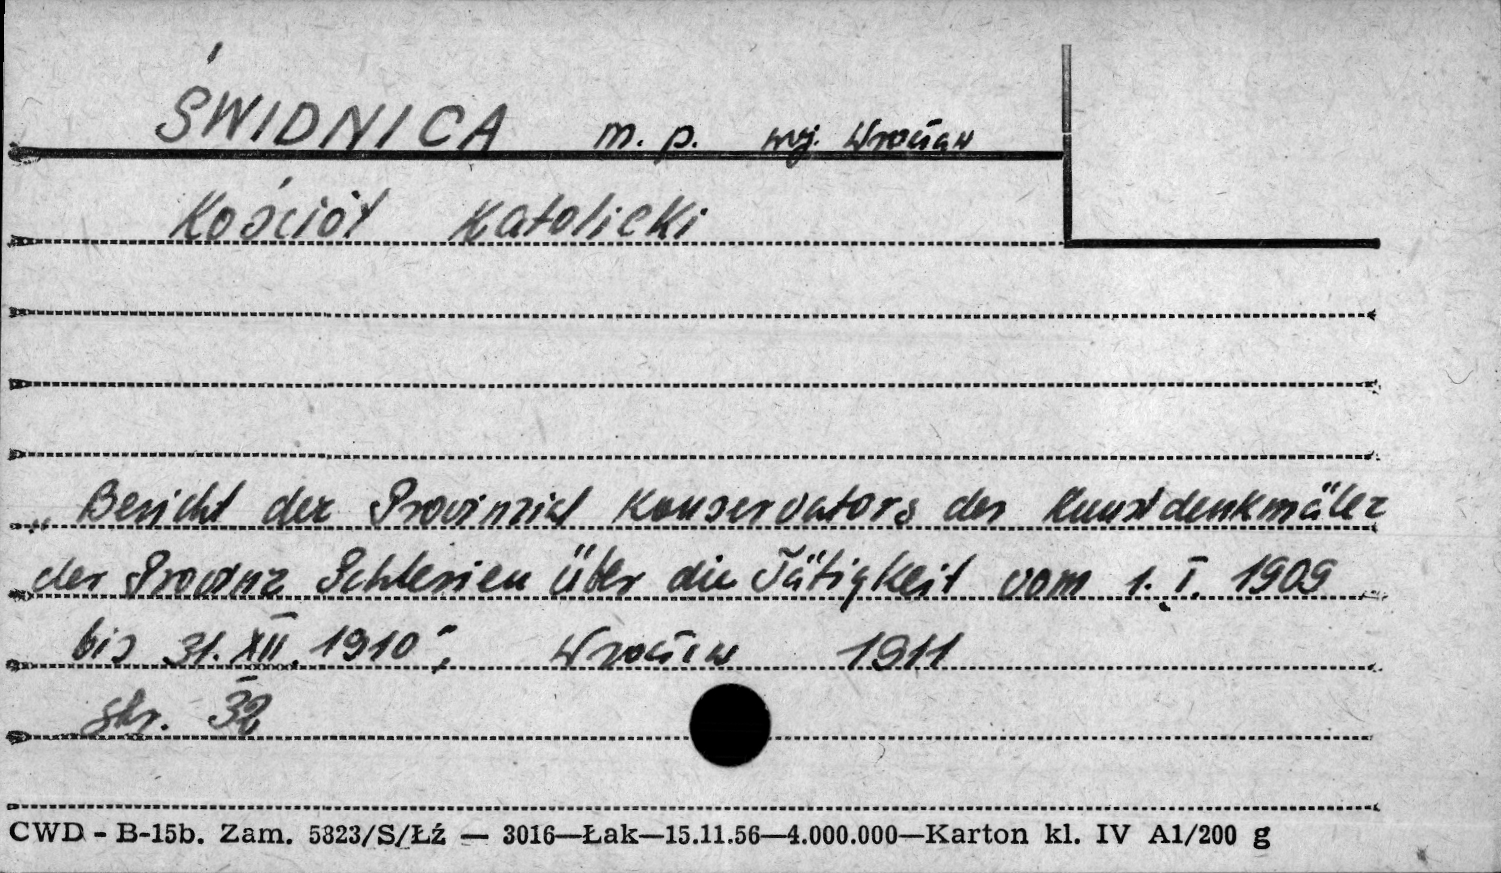 ŚWIDNICA m. p. woj. Wrocław
Kościół Katolicki
„Bericht der Provinzial Konservators der Kunstdenkmäler
der Provinz Schlesien über die Tätigkeit vom 1. I. 1909
bis 31. XII. 1910", Wrocław 1911
str. 32
CWD - B-15b. Zam. 5823/S/Łź — 3016—Łak—15.11.56—4.000.000—Karton kl. IV A1/200 g